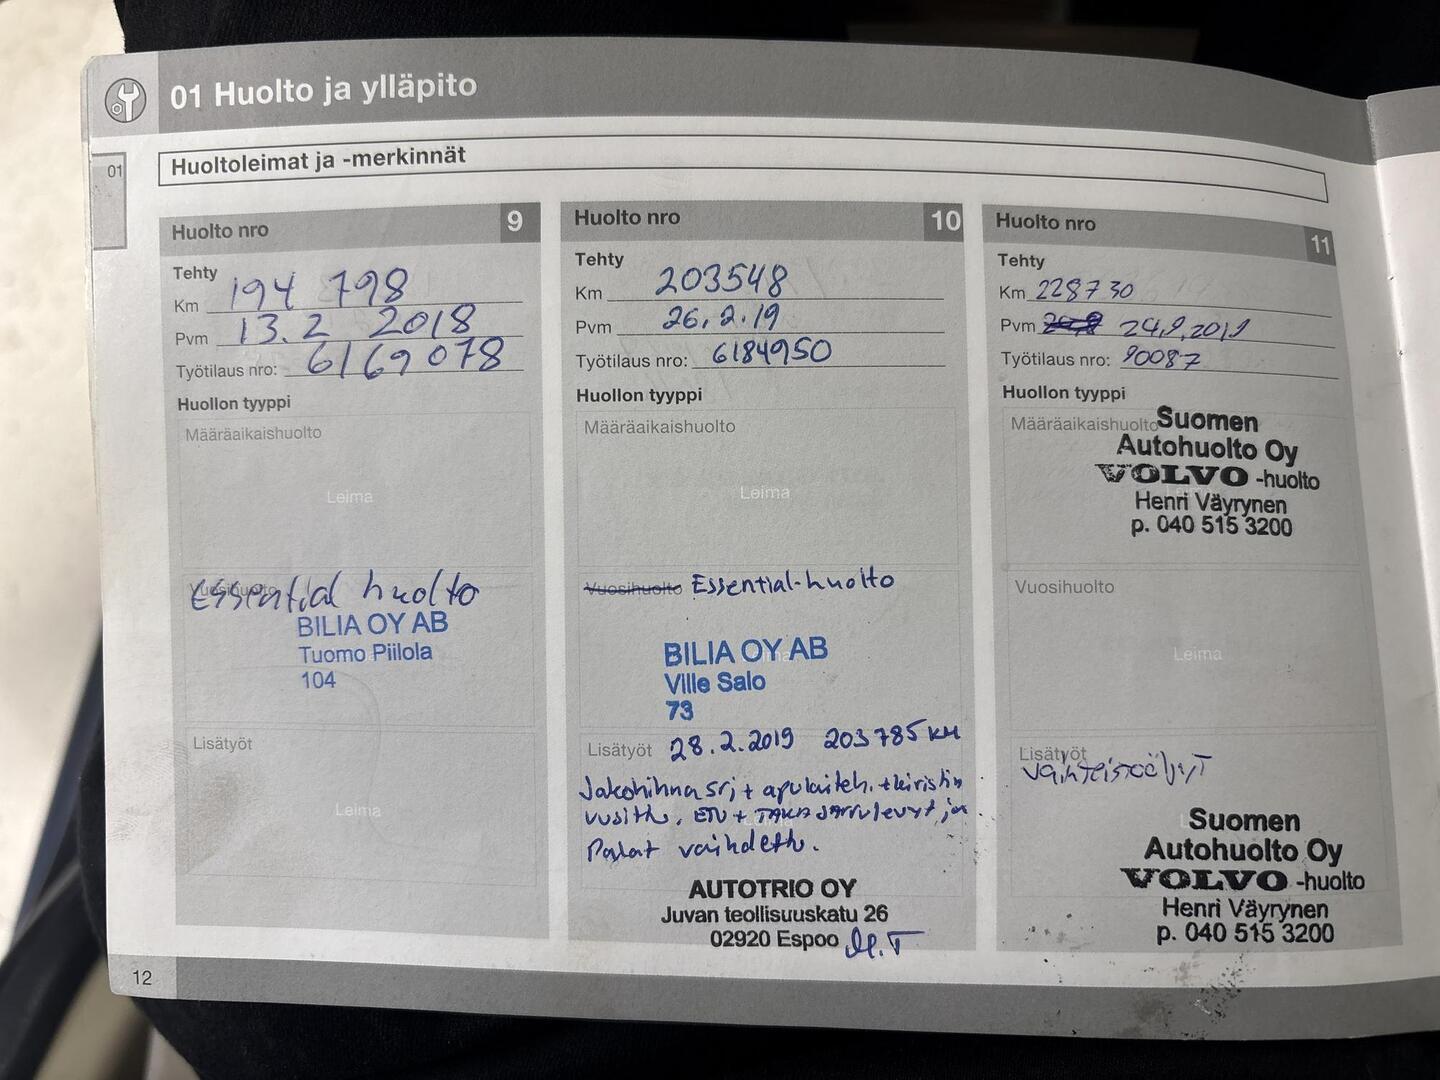 01 Huolto ja ylläpito
01
Huoltoleimat ja -merkinnät
Huolto nro 9
Tehty
Km 194 798
Pvm 13.2 2018
Työtilaus nro: 6169078
Huollon tyyppi
Määräaikaishuolto
Leima
Vuosihuolto
Essential huolto
BILIA OY AB
Tuomo Piilola
104
Lisätyöt
Leima
12
Huolto nro 10
Tehty
Km 203548
Pvm 26.2.19
Työtilaus nro: 6184950
Huollon tyyppi
Määräaikaishuolto
Leima
Vuosihuolto Essential-huolto
BILIA OY AB
Ville Salo
73
Lisätyöt 28.2.2019 203785 KM
Jakohihna srj + apulaiteh. + kiristin
uusittu, ETU + TAKA JARRULEVYT ja
Palat vaihdettu.
AUTOTRIO OY
Juvan teollisuuskatu 26
02920 Espoo M.T
Huolto nro 11
Tehty
Km 228730
Pvm 24.9.2019
Työtilaus nro: 90087
Huollon tyyppi
Määräaikaishuolto
Suomen
Autohuolto Oy
VOLVO -huolto
Henri Väyrynen
p. 040 515 3200
Vuosihuolto
Leima
Lisätyöt
Vaihteistoöljyt
Suomen
Autohuolto Oy
VOLVO -huolto
Henri Väyrynen
p. 040 515 3200